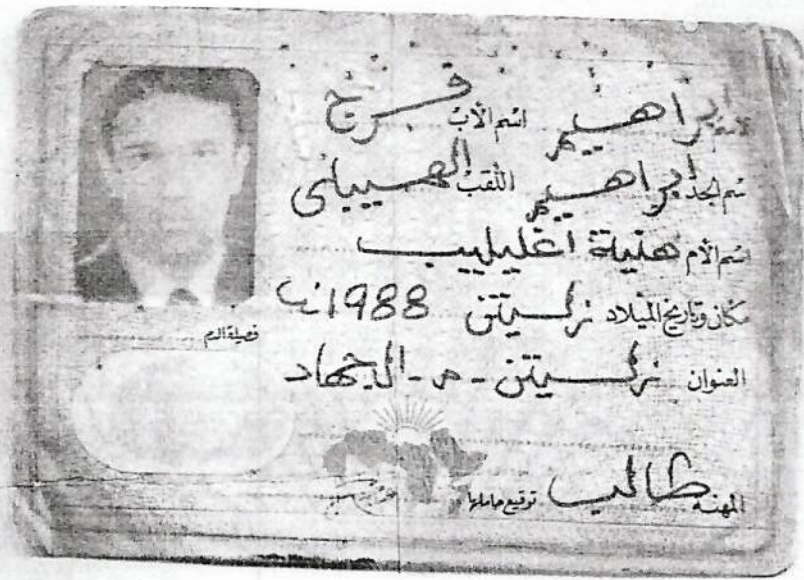 الاسم ابراهيم اسم الأب فرج
اسم الجد ابراهيم اللقب
اسم الأم هنية اغليليب
مكان وتاريخ الميلاد زليتن 1988 ف
فصيلة الدم
العنوان زليتن - م - الجهاد
المهنة طالب توقيع حاملها